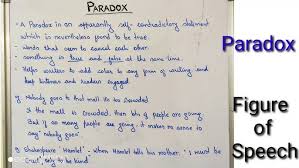 PARADOX
A Paradox in an apparently self-contradictory statement
which is nevertheless found to be true.
words that seem to cancel each other.
something is true and false at the same time.
Helps writers to add color to any form of writing and
keep interests and readers engaged.
Nobody goes to that mall its too crowded
If the mall is crowded, then lots of people are going
But if so many people are going it makes no sense to
say "nobody goes".
Shakespeare 'Hamlet' - when Hamlet tells his mother, "I must be
cruel, only to be kind"
Paradox
Figure
of
Speech